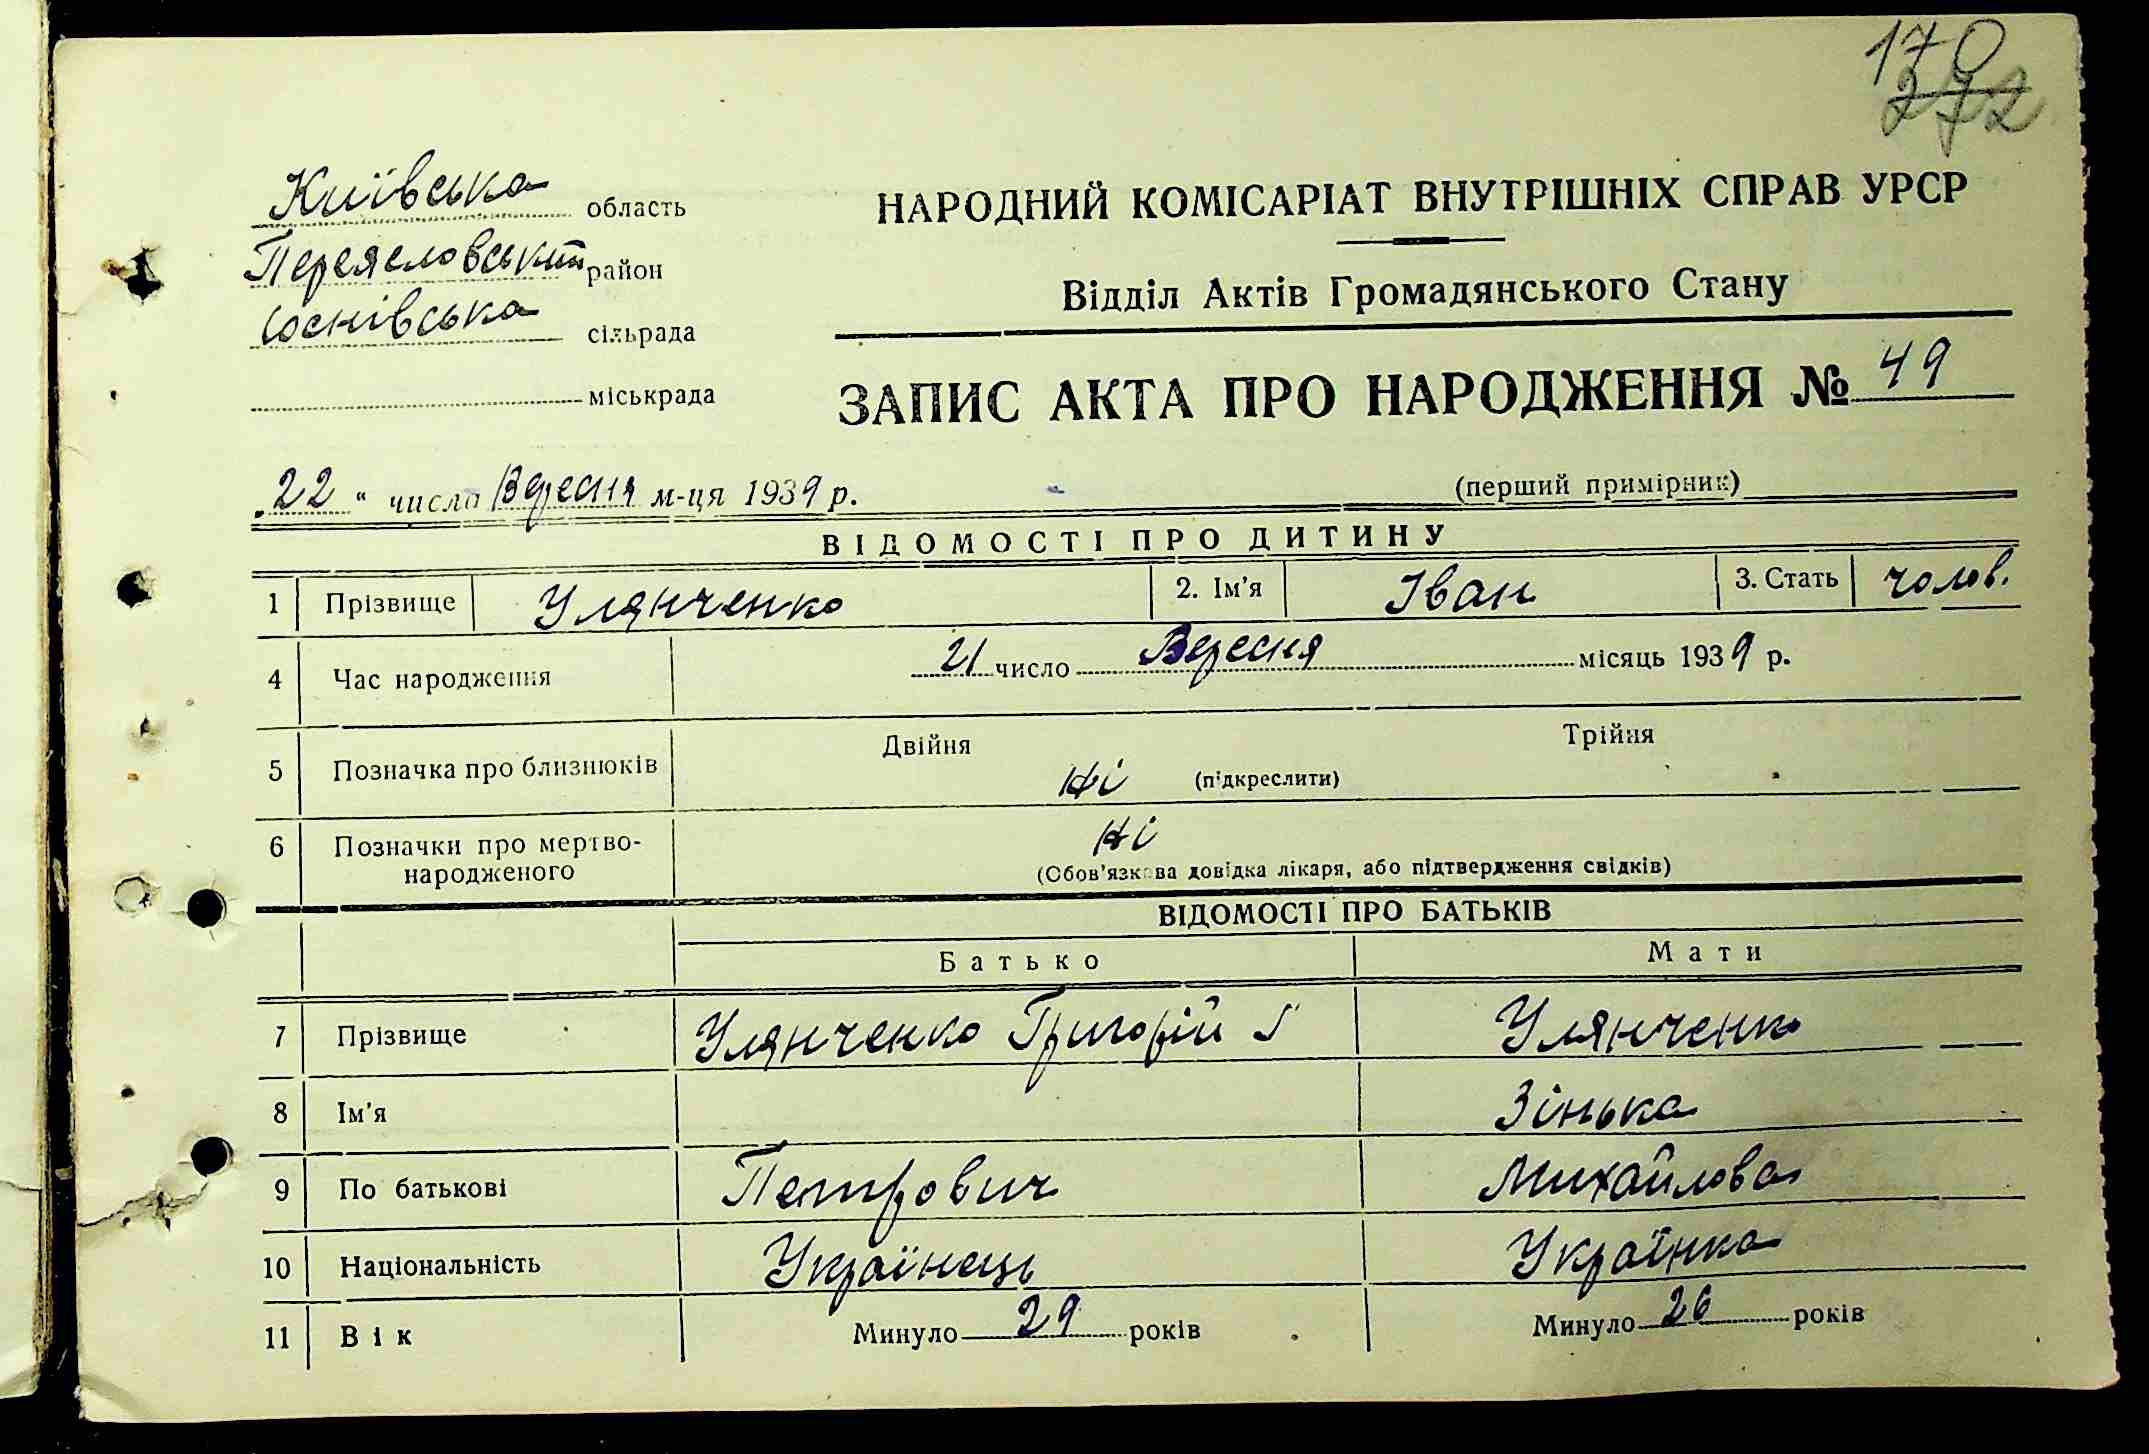 170
272
Київська область
Переяславський район
Соснівська сільрада
міськрада
НАРОДНИЙ КОМІСАРІАТ ВНУТРІШНІХ СПРАВ УРСР
Відділ Актів Громадянського Стану
ЗАПИС АКТА ПРО НАРОДЖЕННЯ № 49
„22" числа Вересня м-ця 1939 р.
(перший примірник)
ВІДОМОСТІ ПРО ДИТИНУ
1 Прізвище Улянченко 2. Ім'я Іван 3. Стать чолов.
4 Час народження 21 число Вересня місяць 1939 р.
5 Позначка про близнюків Двійня Трійня
ні (підкреслити)
6 Позначки про мертво-
народженого
ні
(Обов'язкова довідка лікаря, або підтвердження свідків)
ВІДОМОСТІ ПРО БАТЬКІВ
Батько Мати
7 Прізвище Улянченко Григорій Улянченко
8 Ім'я Зінька
9 По батькові Петрович Михайлова
10 Національність Українець Українка
11 Вік Минуло 29 років Минуло 26 років